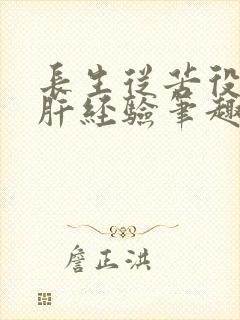 長生從苦役
肝經驗筆趣
詹正洪